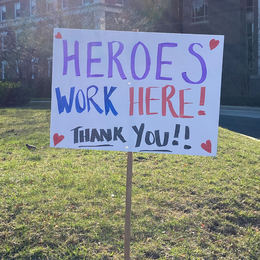 HEROES
WORK HERE!
THANK YOU!!